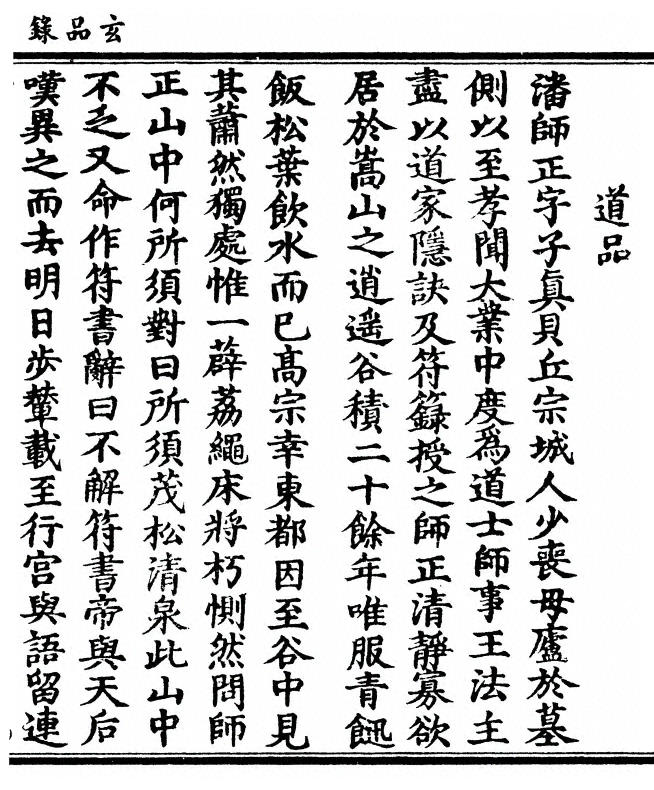 玄品錄
道品
潘師正字子眞貝丘宗城人少喪母廬於墓
側以至孝聞大業中度爲道士師事王法主
盡以道家隱訣及符籙授之師正清靜寡欲
居於嵩山之逍遥谷積二十餘年唯服青
飯松葉飲水而已髙宗幸東都因至谷中見
其蕭然獨處惟一薜荔繩床將朽惻然問師
正山中何所須對曰所須茂松清泉此山中
不乏又命作符書辭曰不解符書帝與天后
嘆異之而去明日步輦載至行宫與語留連